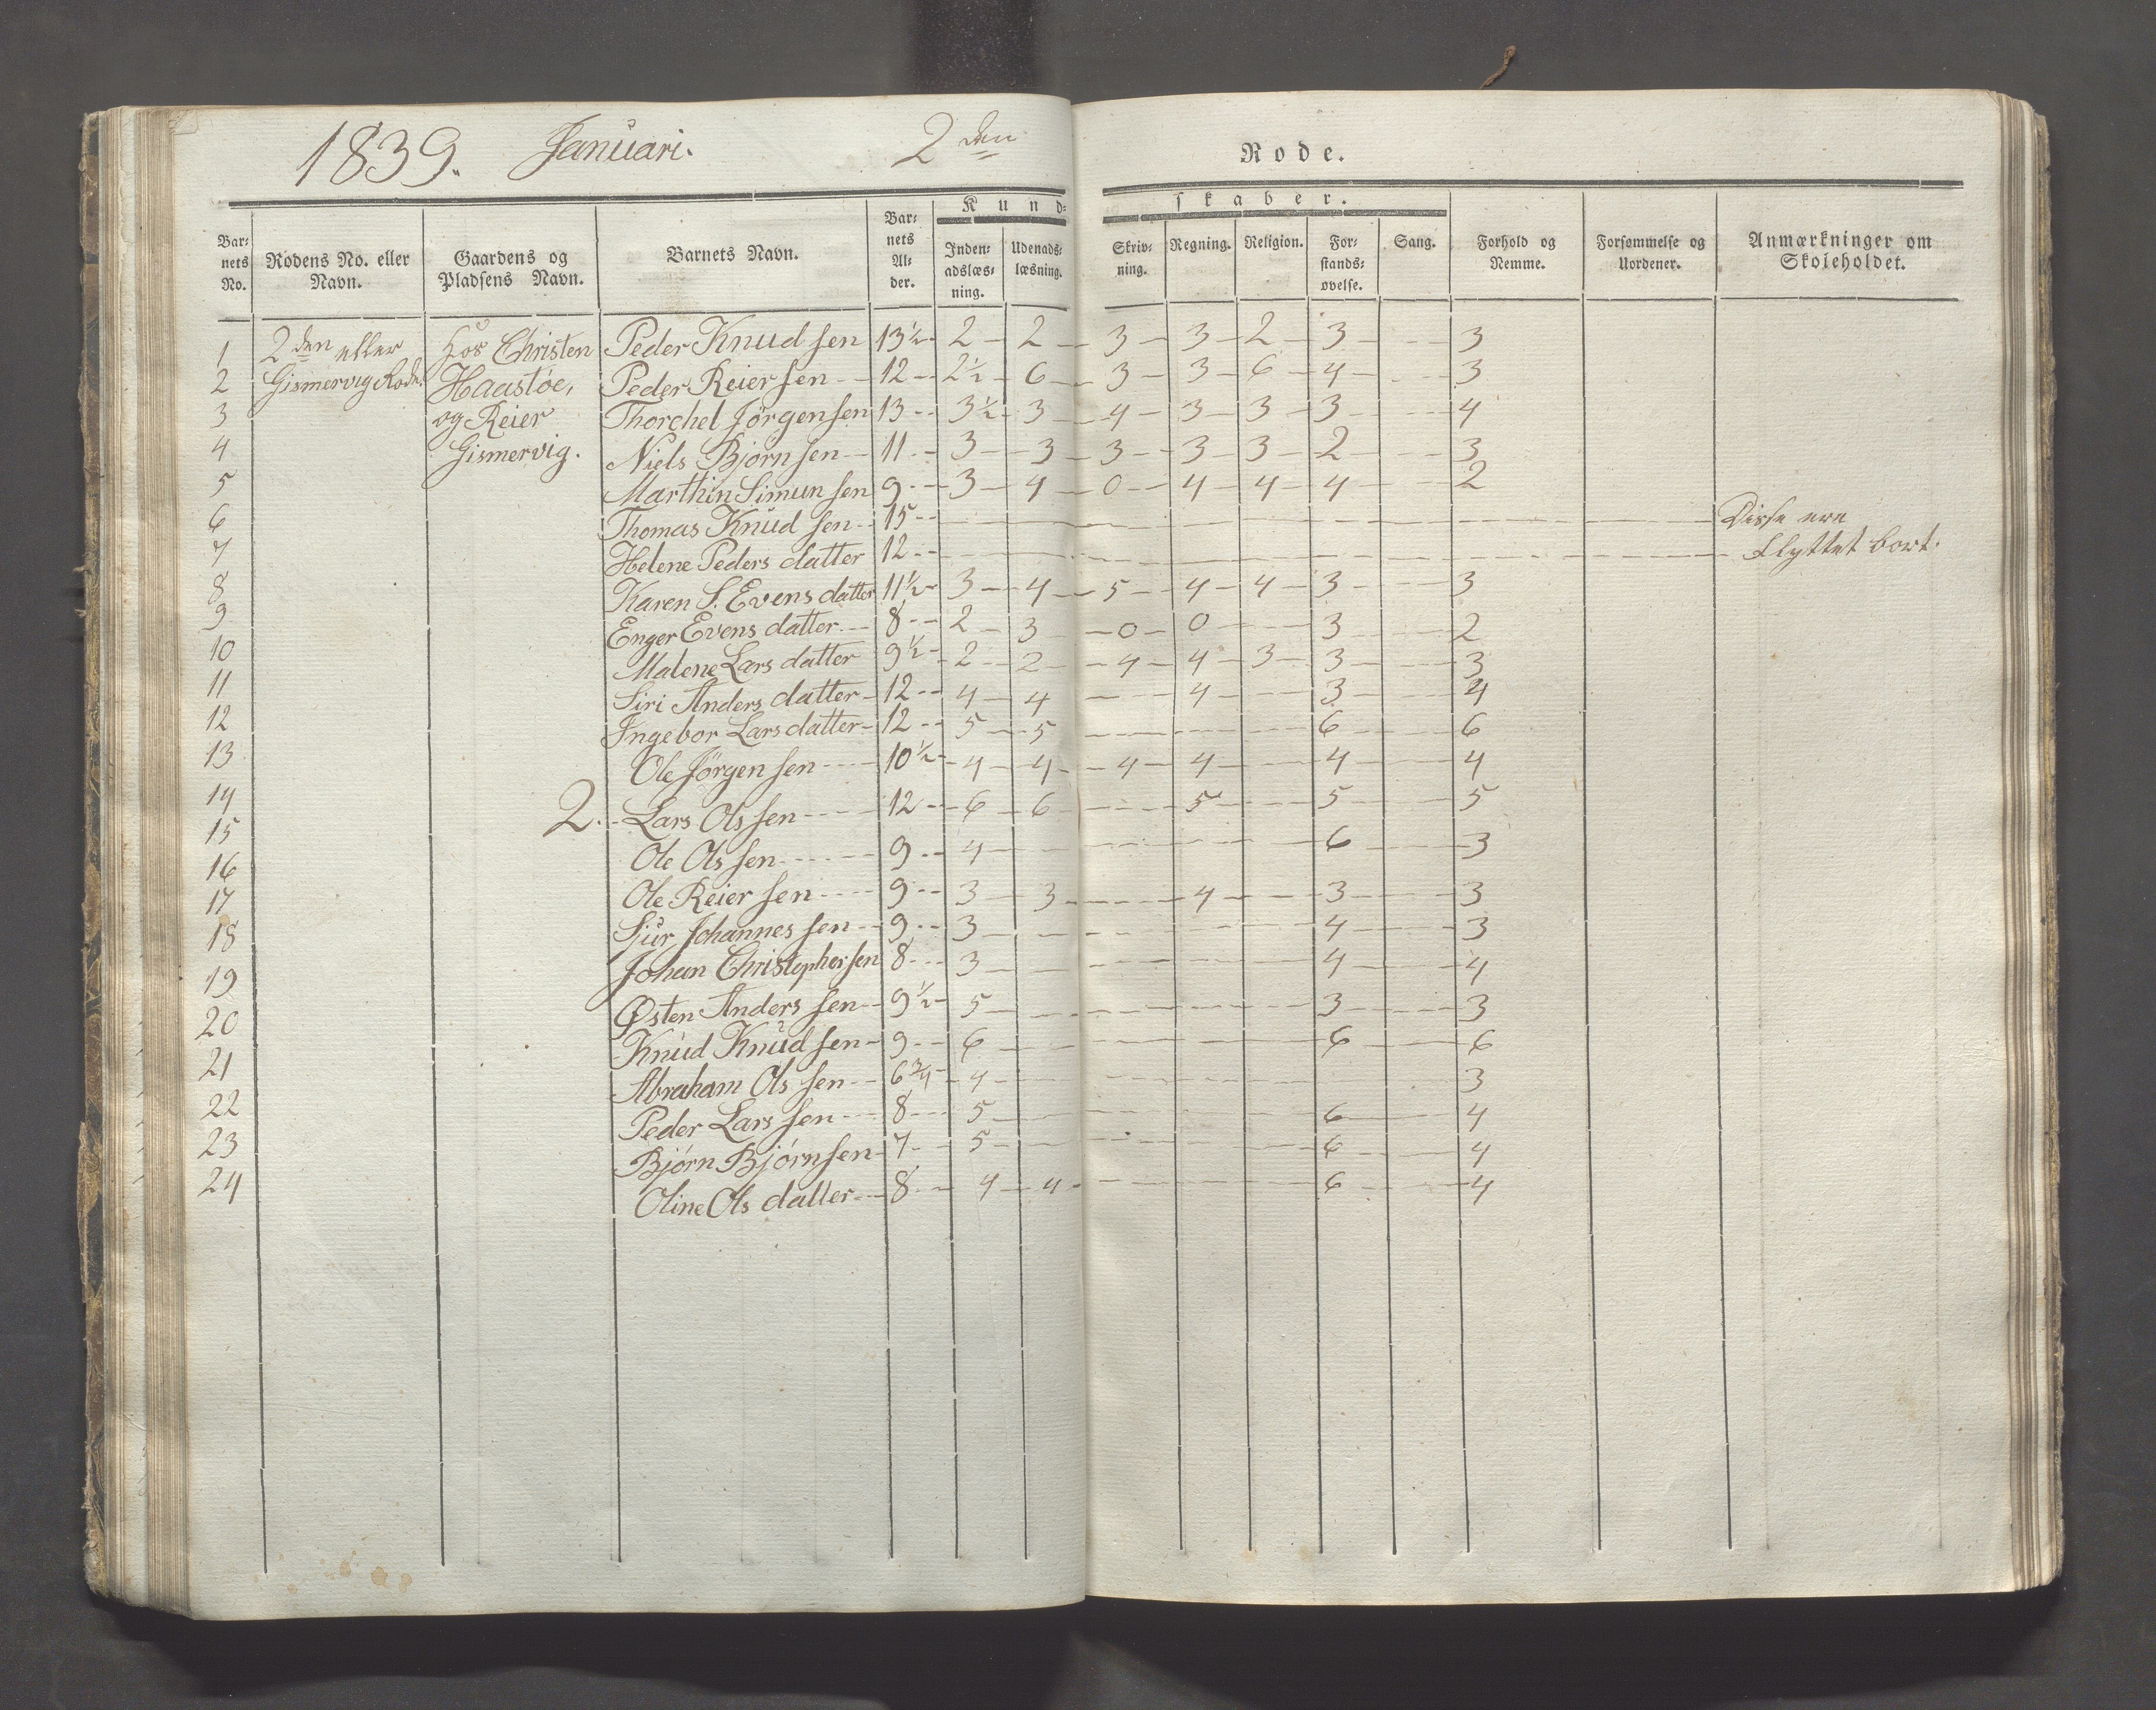 1839. Januari. 2den Rode.
Kund= skaber.
Bar= nets No. | Rodens No. eller Navn. | Gaardens og Pladsens Navn. | Barnets Navn. | Bar= nets Al= der. | Inden= adslæs= ning. | Udenads= læsning. | Skriv= ning. | Regning. | Religion. | For= stands= øvelse. | Sang. | Forhold og Nemme. | Forsømmelse og Uordener. | Anmærkninger om Skoleholdet.
1 2den eller Hos Christen Peder Knudsen 13½ 2 2 3 3 2 3 3
2 Gismervig Rode. Haastøe, Peder Reiersen 12 2½ 6 3 3 6 4 3
3 og Reier Thorchel Jörgensen 13 3½ 3 4 3 3 3 4
4 Gismervig. Niels Bjørnsen 11 3 3 3 3 3 2 3
5 Marthin Simunsen 9 3 4 0 4 4 4 2
6 Thomas Knudsen 15 Disse ere
7 Helene Peders datter 12 flyttet bort.
8 Karen S. Evens datter 11½ 3 4 5 4 4 3 3
9 Enger Evens datter 8 2 3 0 0 3 2
10 Malene Lars datter 9½ 2 2 4 4 3 3 3
11 Siri Anders datter 12 4 4 4 3 4
12 Ingebor Lars datter 12 5 5 6 6
13 Ole Jörgensen 10½ 4 4 4 4 4 4
14 2. Lars Olssen 12 6 6 5 5 5
15 Ole Olssen 9 4 6 3
16 Ole Reiersen 9 3 3 4 3 3
17 Sjur Johannessen 9 3 4 3
18 Johan Christophersen 8 3 4 4
19 Østen Anderssen 9½ 5 3 3
20 Knud Knudsen 9 6 6 6
21 Abraham Olssen 6¾ 4 3
22 Peder Larssen 8 5 6 4
23 Bjørn Bjørnsen 7 5 6 4
24 Oline Ols datter 8 4 4 6 4